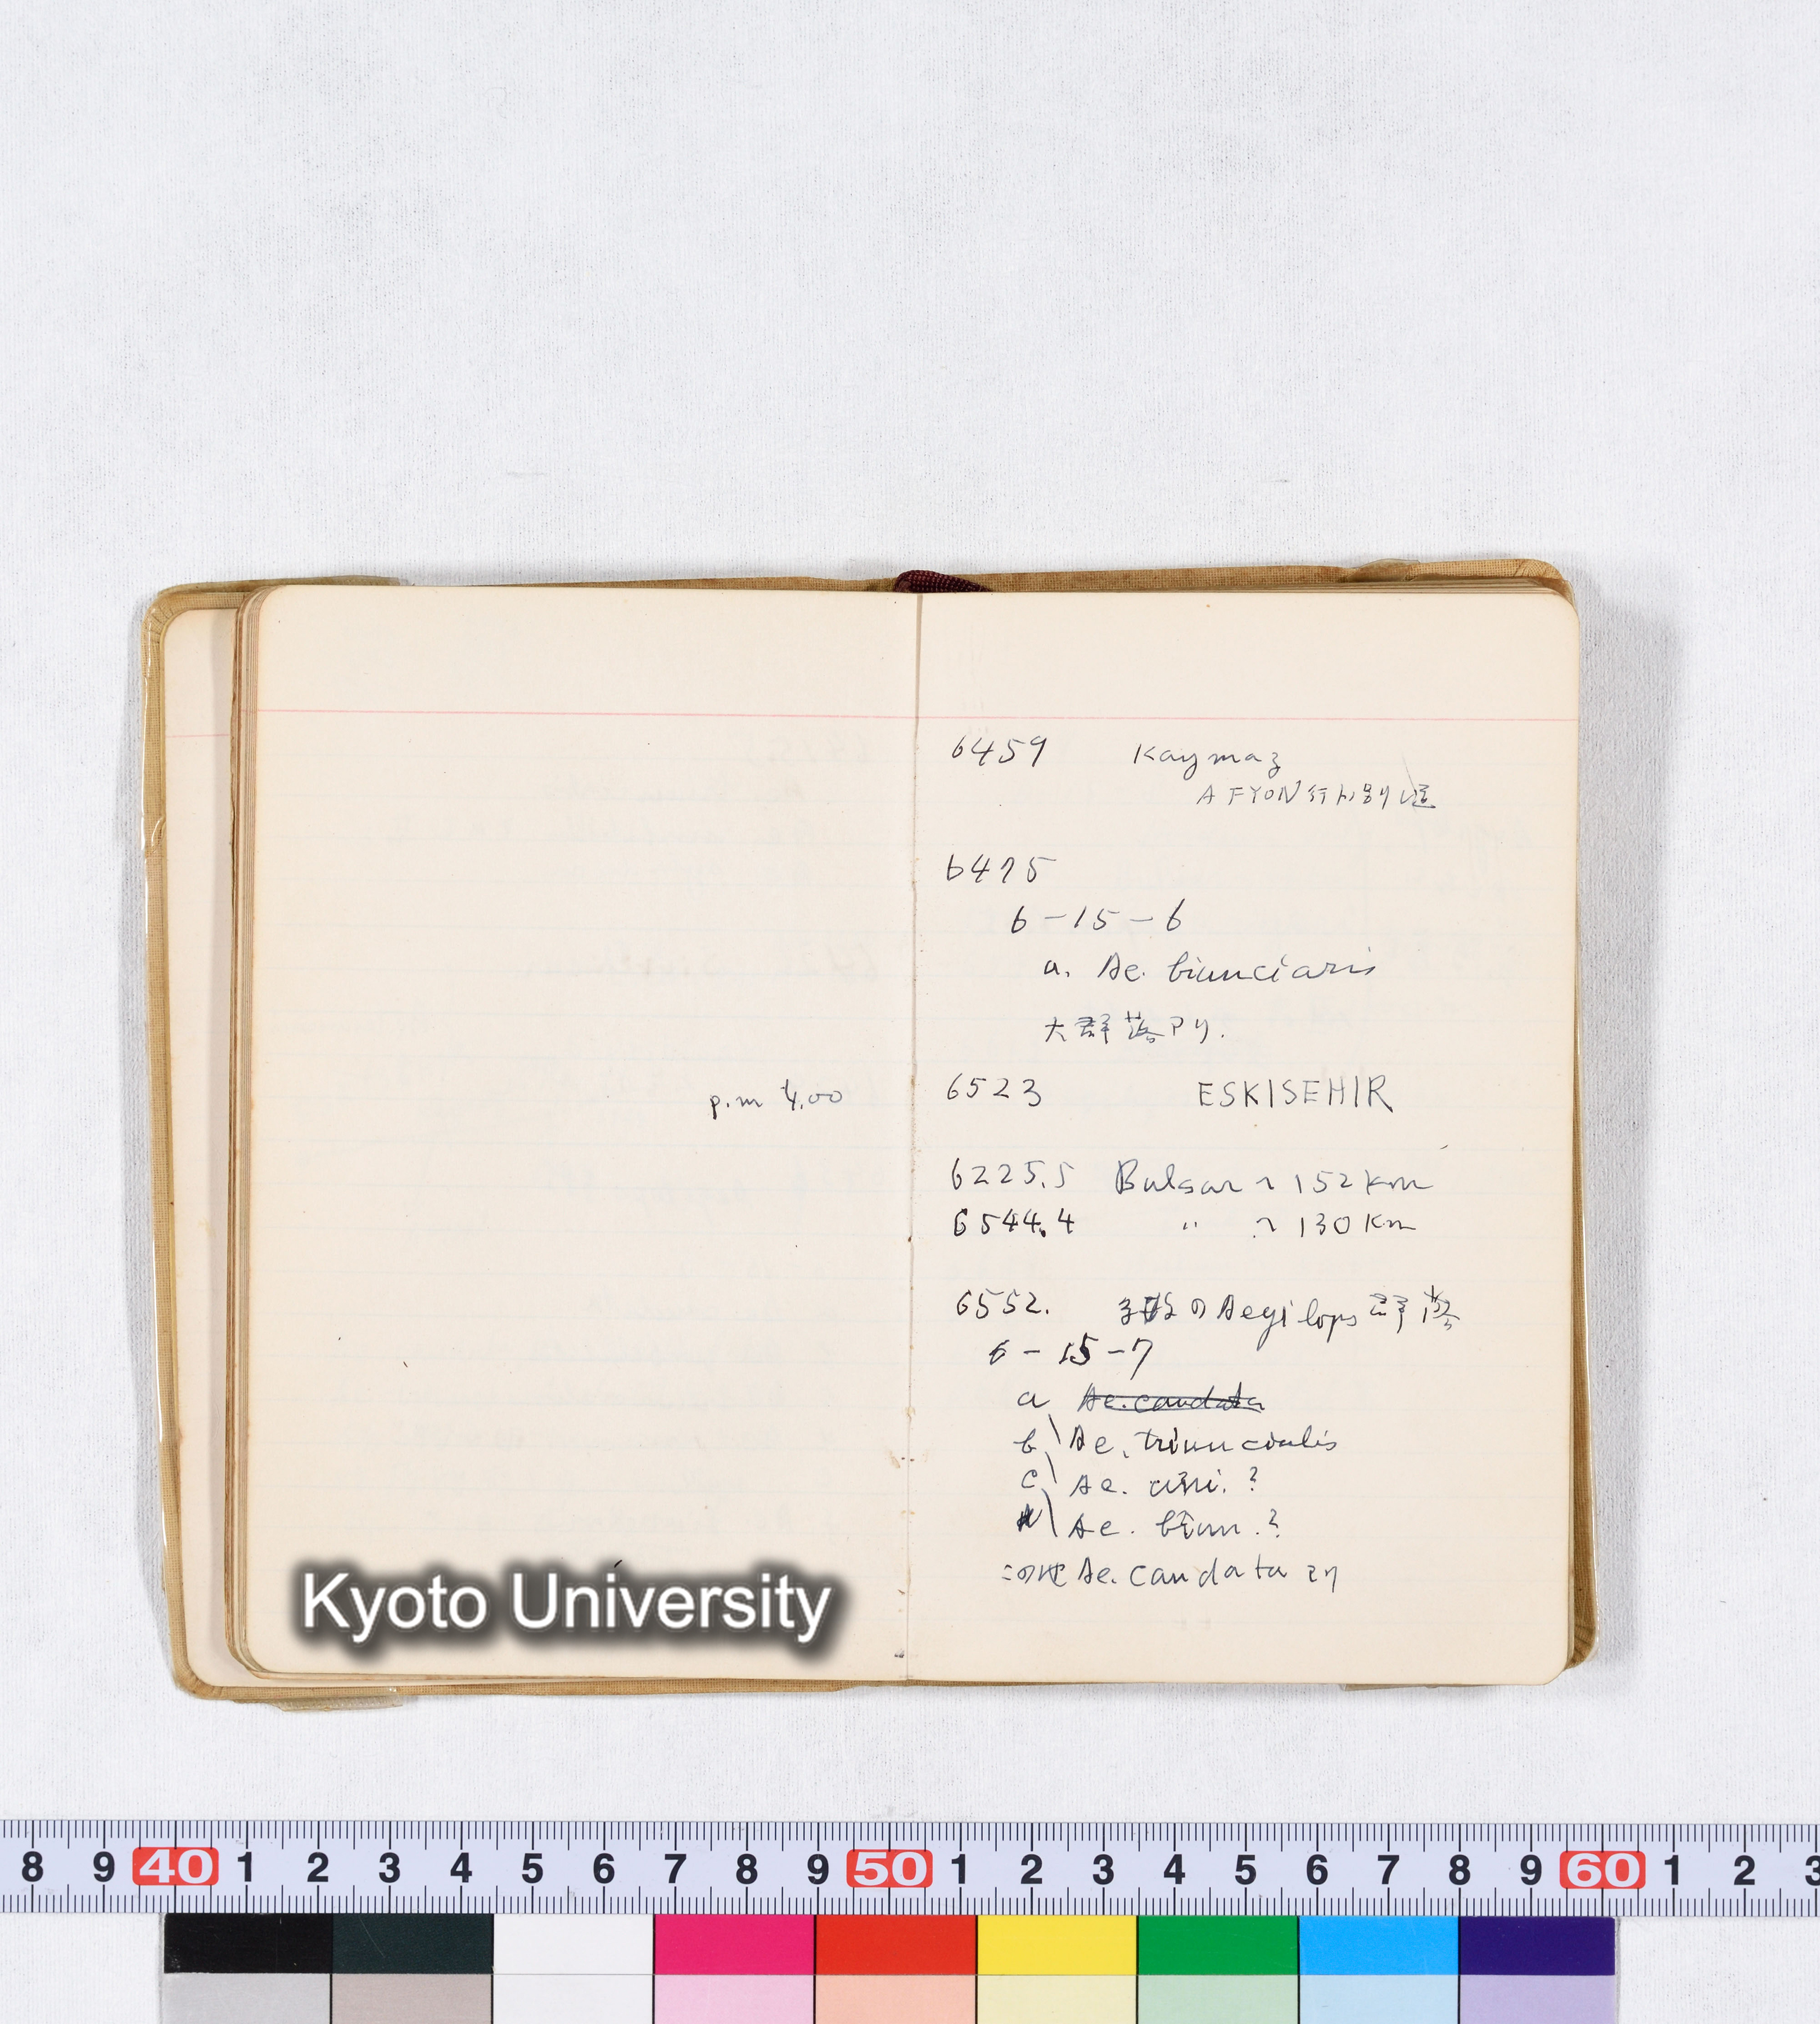 p.m 4.00
6459 Kaymaz
AFYON行ト別り道
6475
6-15-6
a. Ae. biunciaris
大群落アリ.
6523 ESKISEHIR
6225.5 Bulsar ～ 152 Km
6544.4 〃 ～ 130 Km
6552. の Aegilops 群落
6-15-7
a Ae. caudata
b Ae. triuncialis
c Ae. ?
Ae. biun. ?
この他 Ae. caudata アリ
Kyoto University
8 9 40 1 2 3 4 5 6 7 8 9 50 1 2 3 4 5 6 7 8 9 60 1 2 3